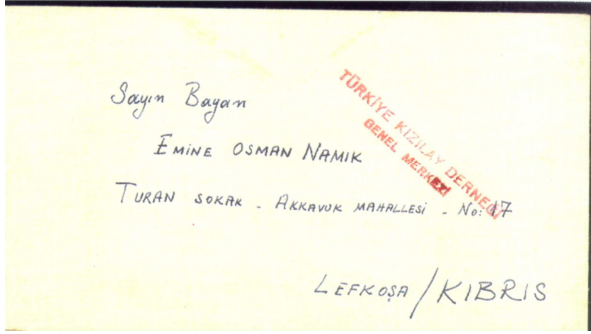 Sayın Bayan
EMİNE OSMAN NAMIK
TURAN SOKAK - AKKAVUK MAHALLESİ - No: 17
LEFKOŞA / KIBRIS
TÜRKİYE KIZILAY DERNEĞİ
GENEL MERKEZİ